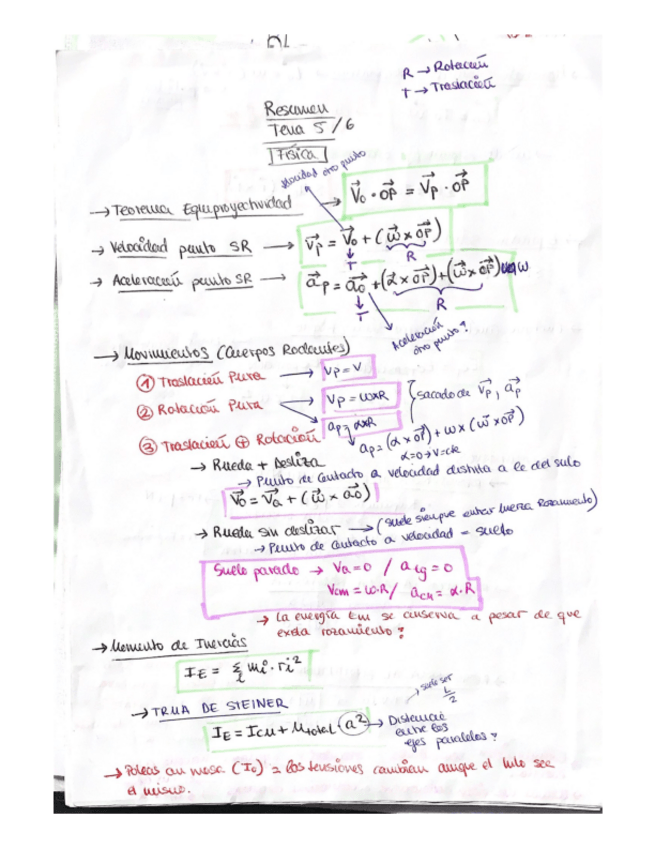 R → Rotación
T → Traslación
Resumen
Tema 5/6
Física
velocidad otro punto
→ Teorema Equiproyectividad → V⃗o · OP⃗ = V⃗p · OP⃗
→ Velocidad punto SR → V⃗p = V⃗o + (ω⃗ x OP⃗)
T R
→ Aceleración punto SR → a⃗p = a⃗o + (α⃗ x OP⃗) + (ω⃗ x OP⃗)
T R
Aceleración otro punto?
→ Movimientos (Cuerpos Rodantes)
① Traslación Pura → Vp = V
② Rotación Pura → Vp = ωxR
ap = αxR
sacado de V⃗p, a⃗p
ap = (α x OP⃗) + ω x (ω⃗ x OP⃗)
α=0 → v=cte
③ Traslación ⊕ Rotación
→ Rueda + Desliza
→ Punto de contacto a velocidad distinta a la del suelo
V⃗o = V⃗a + (ω⃗ x ao⃗)
→ Rueda sin deslizar → (suele siempre entrar fuerza Rozamiento)
→ Punto de contacto a velocidad = suelo
Suelo parado → Va=0 / atg=0
Vcm = ω·R / acm = α·R
→ La energía Em se conserva a pesar de que
exista rozamiento?
→ Momento de Inercias
IE = Σi mi · ri²
→ TRMA DE STEINER
suele ser L/2
IE = Icm + Mtotal (a²) → Distancia
entre los
ejes paralelos?
→ Poleas con masa (Io) = las tensiones cambian aunque el hilo sea
el mismo.